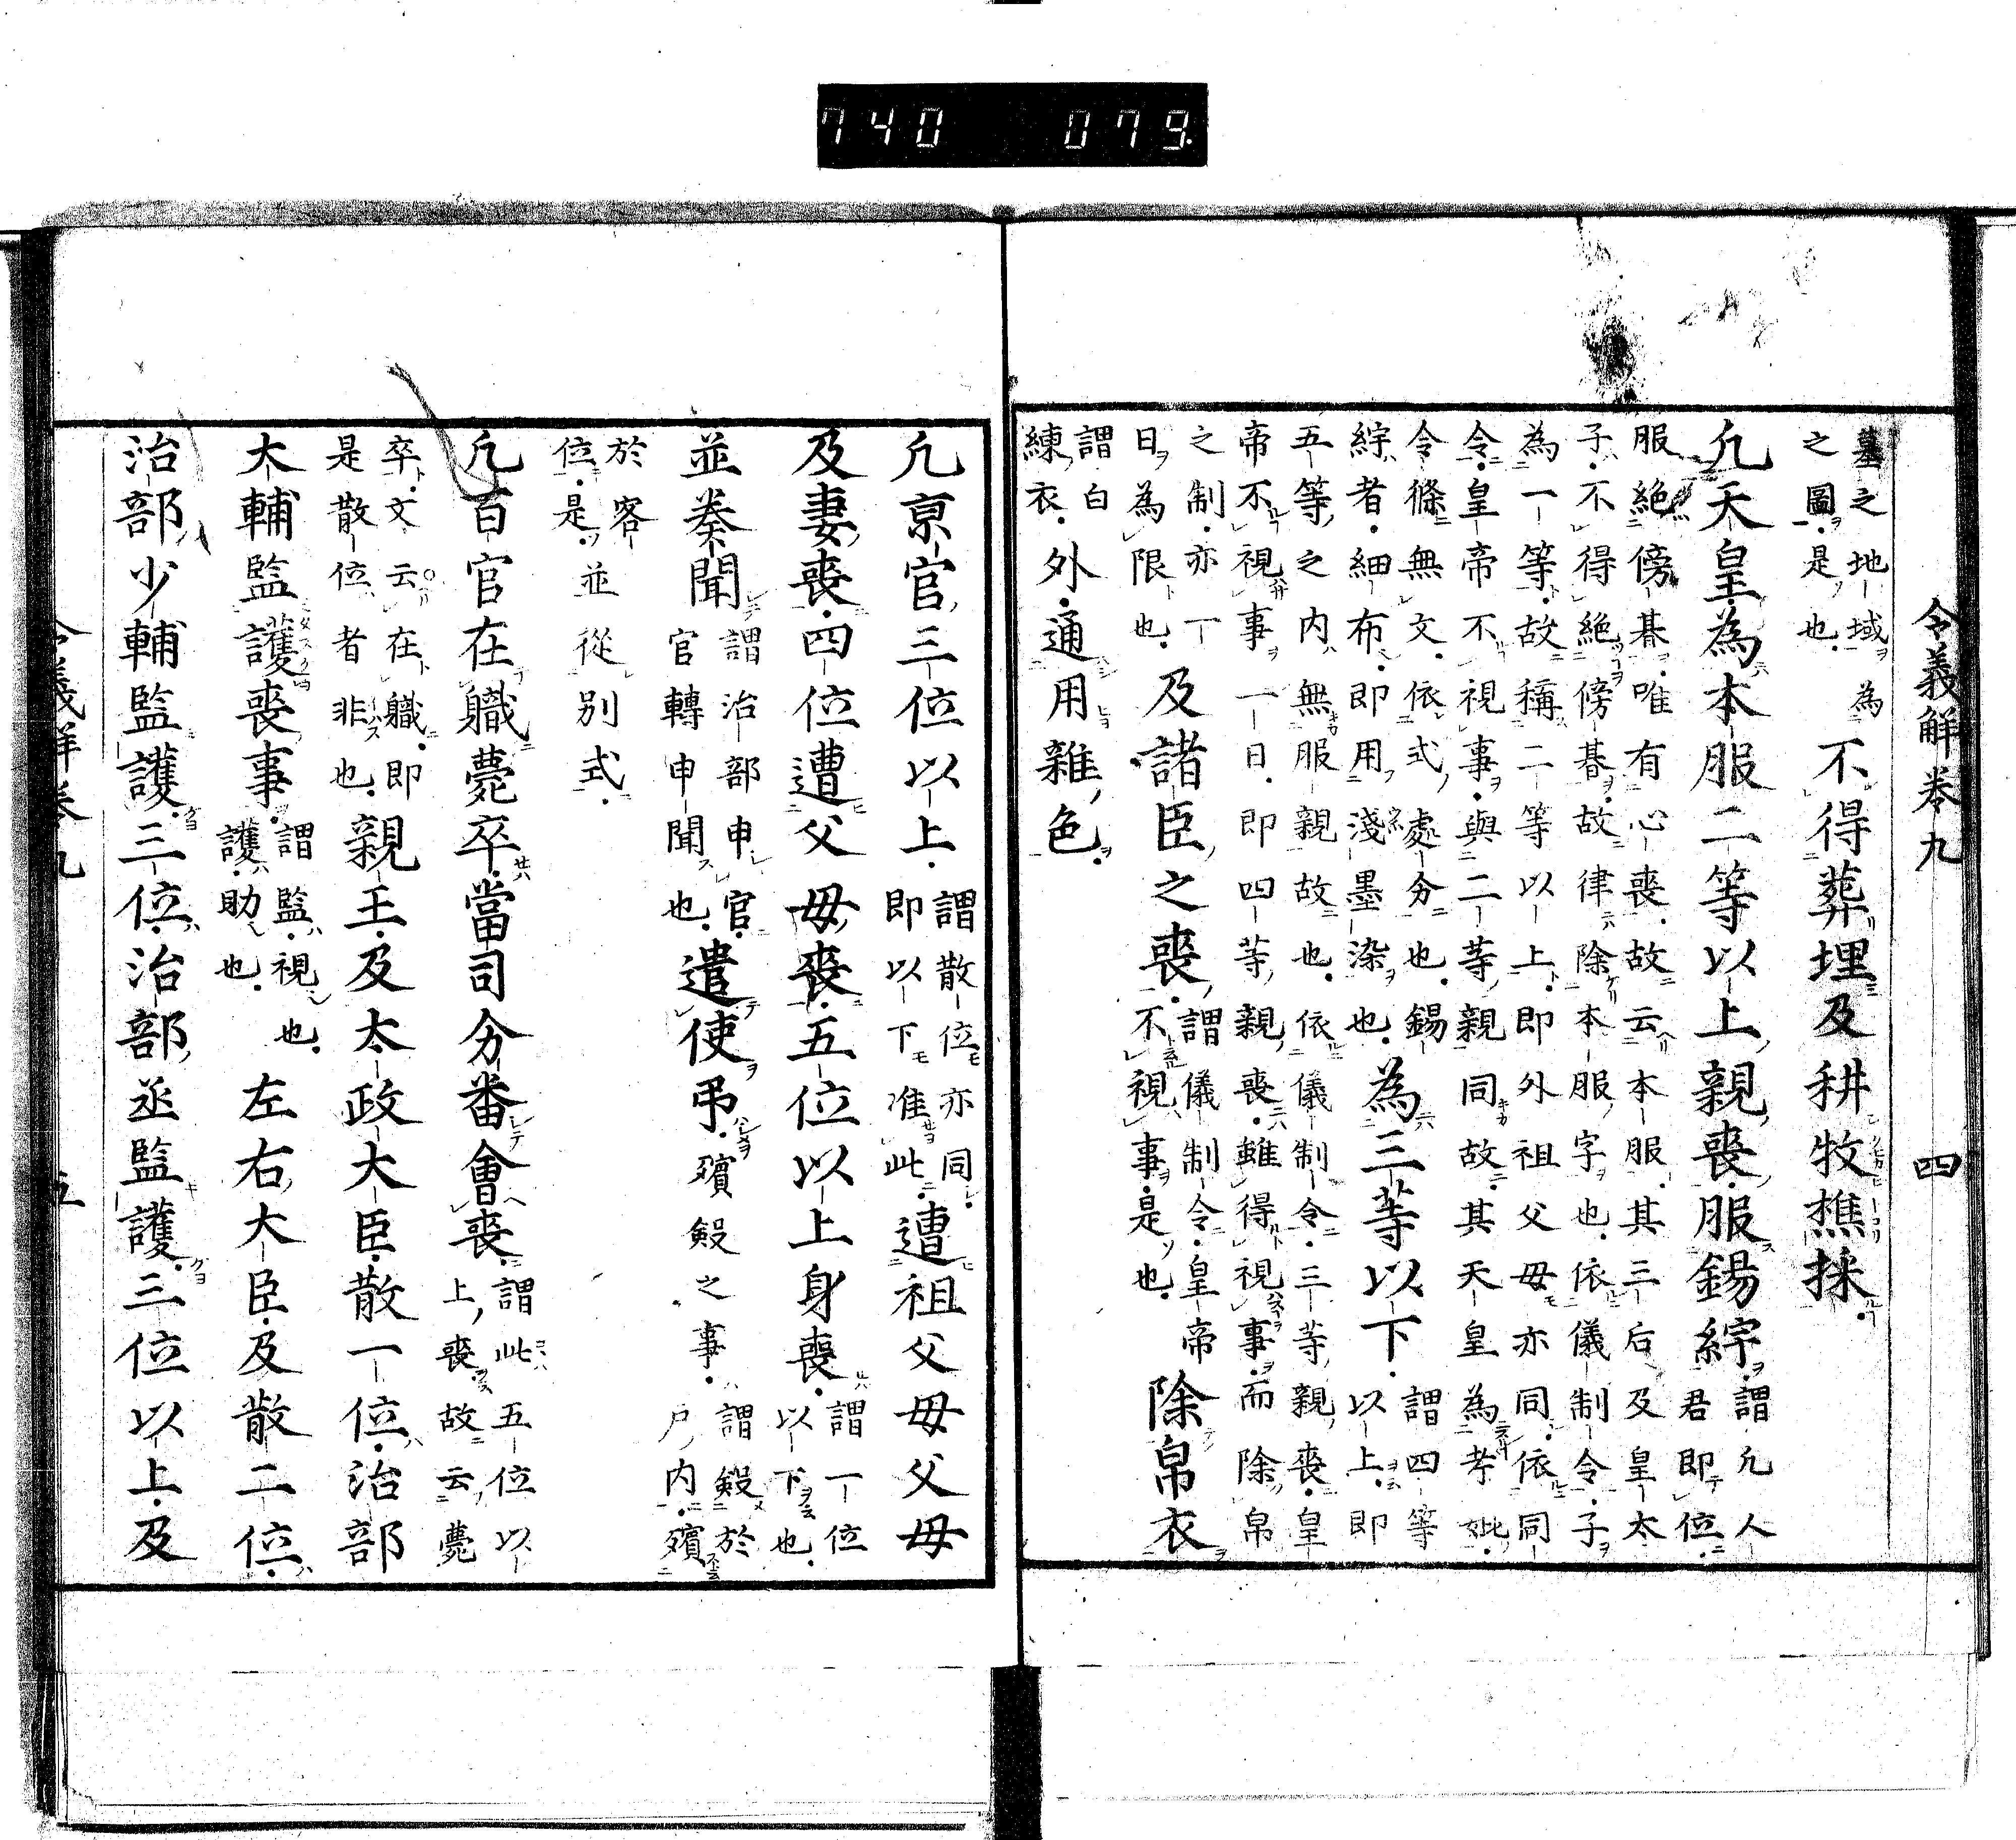 740 079
令義解卷九 四
墓之地域為
之圖是也
不得葬埋及耕牧樵採
凡天皇為本服二等以上親喪服錫紵
謂凡人
君即位
服絕傍朞唯有心喪故云本服其三后及皇太
子不得絕傍朞故律除本服字也依儀制令子
為一等故稱二等以上即外祖父母亦同依同
令皇帝不視事與二等親同故其天皇為考妣
令條無文依式處分也錫
紵者細布即用淺墨染也
為三等以下
謂四等
以上即
五等之内無服親故也依儀制令三等親喪皇
帝不視事一日即四等親喪雖得視事而除帛
之制亦一
日為限也
及諸臣之喪
謂儀制令皇帝
不視事是也
除帛衣
謂白
練衣
外通用雜色
凡京官三位以上
謂散位亦同
即以下准此
遭祖父母父母
及妻喪四位遭父母喪五位以上身喪
謂一位
以下也
並奏聞
謂治部申官
官轉申聞也
遣使弔殯斂之事
謂斂於
戶内殯
於客
位是
並從别式
凡百官在職薨卒當司分番會喪
謂此五位以
上喪故云薨
卒文云在職即
是散位者非也
親王及太政大臣散一位治部
大輔監護喪事
謂監視也
護助也
左右大臣及散二位
治部少輔監護三位治部丞監護三位以上及
令義解卷九 五